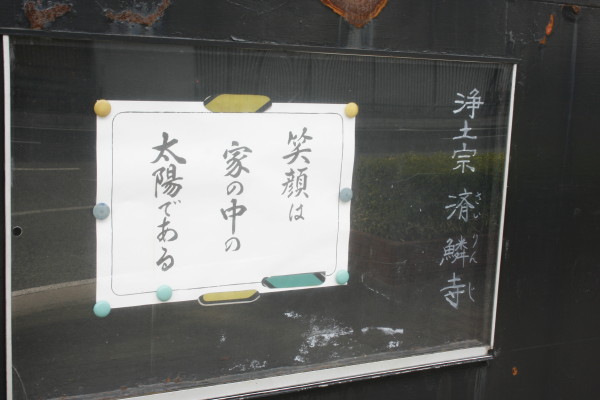 浄土宗 済鱗寺
さいりんじ
笑顔は
家の中の
太陽である